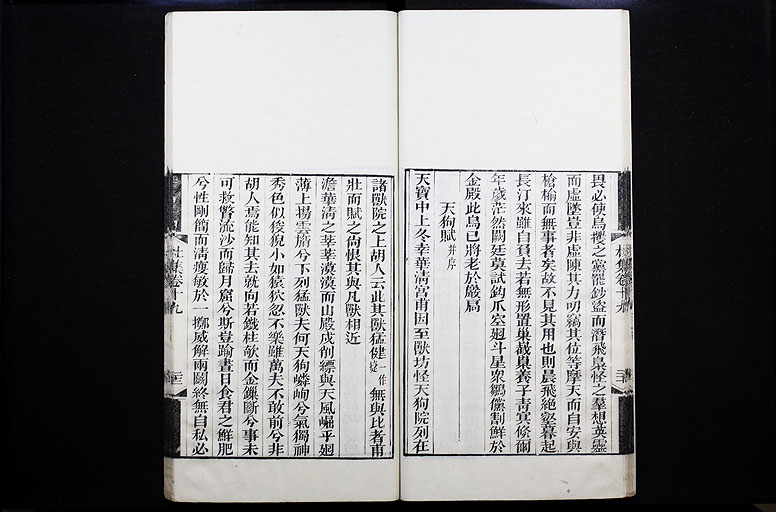 畏必使烏攫之黨罷鈔盜而潛飛梟怪之羣想英靈
而虛墜豈非虛陳其力叨竊其位等摩天而自安與
槍榆而無事者矣故不見其用也則晨飛絕壑暮起
長汀來雖自負去若無形置巢截嶪養子青冥倏爾
年歲茫然闕廷莫試鈎爪空迴斗星衆鶵儻割鮮於
金殿此鳥已將老於巖扃
天狗賦并序
天寶中上冬幸華清宮甫因至獸坊怪天狗院列在
諸獸院之上胡人云此其獸猛健一作捷無與比者甫
壯而賦之尚恨其與凡獸相近
澹華清之莘莘漠漠而山殿戍削縹與天風崛乎迴
薄上揚雲旓兮下列猛獸夫何天狗嶙峋兮氣獨神
秀色似狻猊小如猿狖忽不樂雖萬夫不敢前兮非
胡人焉能知其去就向若鐵柱欹而金鏁斷兮事未
可救瞥流沙而歸月窟兮斯豈踰晝日食君之鮮肥
兮性剛簡而清瘦敏於一擲威解兩鬭終無自私必
杜集卷十九
二十三